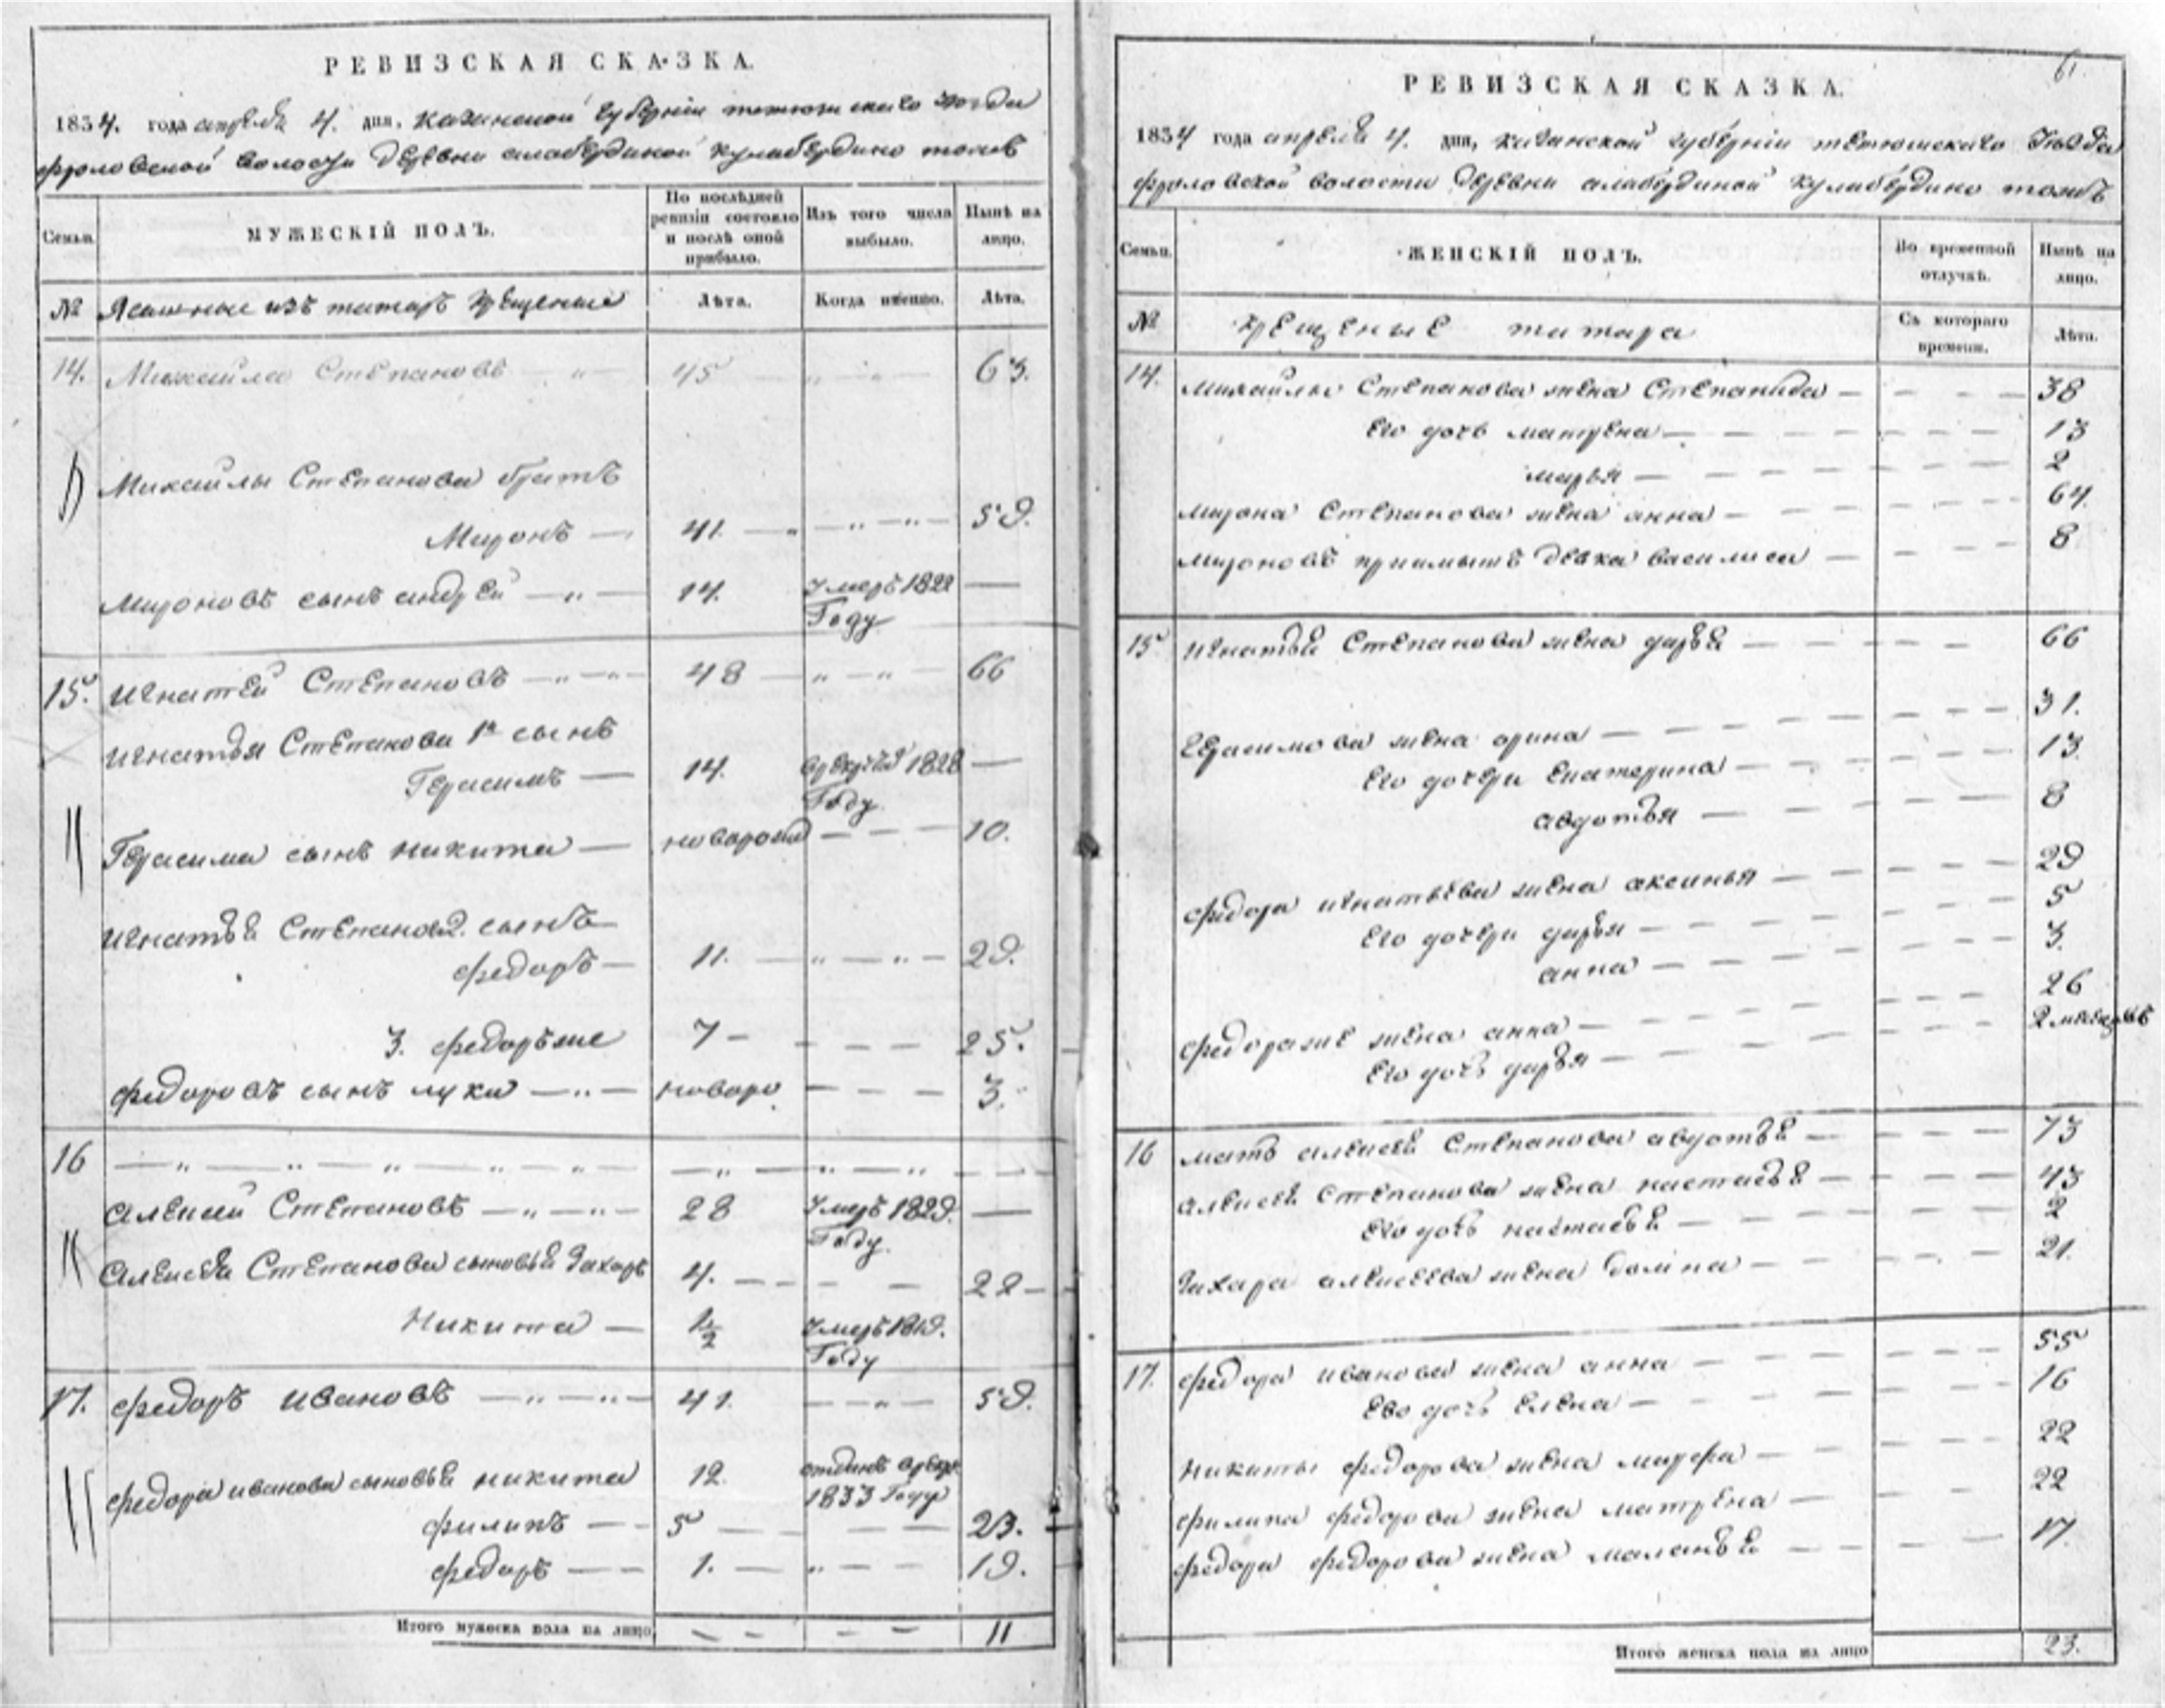 РЕВИЗСКАЯ СКАЗКА.
1834. года апреля 4. дня, Казанской губернии тетюшскаго уезда
фроловской волости деревни алабердиной кулабердино тожъ
Семьи.
МУЖЕСКІЙ ПОЛЪ.
По послѣдней ревизіи состояло и послѣ оной прибыло.
Изъ того числа выбыло.
Нынѣ на лицо.
№ Ясашные изъ татаръ крещеные
Лѣта.
Когда именно.
Лѣта.
14. Михаила Степановъ 45 63.
Михаилы Степанова братъ
Миронъ 41. 59.
Мироновъ сынъ андрей 14. умеръ 1822
Году
15. Игнатей Степановъ 48 66
Игнатья Степанова 1й сынъ
Герасимъ 14. 1828
Году
Герасима сынъ никита новорож 10.
Игнатья Степанова 2. сынъ
федоръ 11. 29.
3. федоръ же 7 25.
федоровъ сынъ лука новоро 3.
16
Алексей Степановъ 28 умеръ 1829.
Году
Алексея Степанова сыновья Захаръ 4. 22
Никита 1/2 умеръ 1819.
Году
17. федоръ Ивановъ 41. 59.
федора иванова сыновья никита 12.
1833 Году
филипъ 5 23.
федоръ 1. 19.
Итого мужеска пола на лицо 11
61.
РЕВИЗСКАЯ СКАЗКА.
1834 года апреля 4. дня, казанской губернии тетюшскаго уезда
фроловской волости деревни алабердиной кулабердино тожъ
Семьи.
ЖЕНСКІЙ ПОЛЪ.
Во временной отлучкѣ.
Нынѣ на лицо.
№ крещеные татара
Съ котораго времени.
Лѣта.
14. Михаилы Степанова жена Степанида 38
Его дочь матрена 13
марья 2
мирона Степанова жена анна 64
мироновъ приемышъ девка василиса 8
15 Игнатья Степанова жена дарья 66
Герасимова жена орина 31.
Его дочери Екатерина 13.
авдотья 8
федора игнатьева жена аксинья 29
Его дочери дарья 5
анна 3.
федора же жена анна 26
Его дочь дарья 2 месяцовъ
16 мать алексея Степанова авдотья 73
алексея Степанова жена настасья 43
Его дочь настасья 2
Захара алексеева жена 21.
17. федора иванова жена анна 55
Ево дочь Елена 16
никиты федорова жена марфа 22
филипа федорова жена матрена 22
федора федорова жена маланья 17.
Итого женска пола на лицо 23.